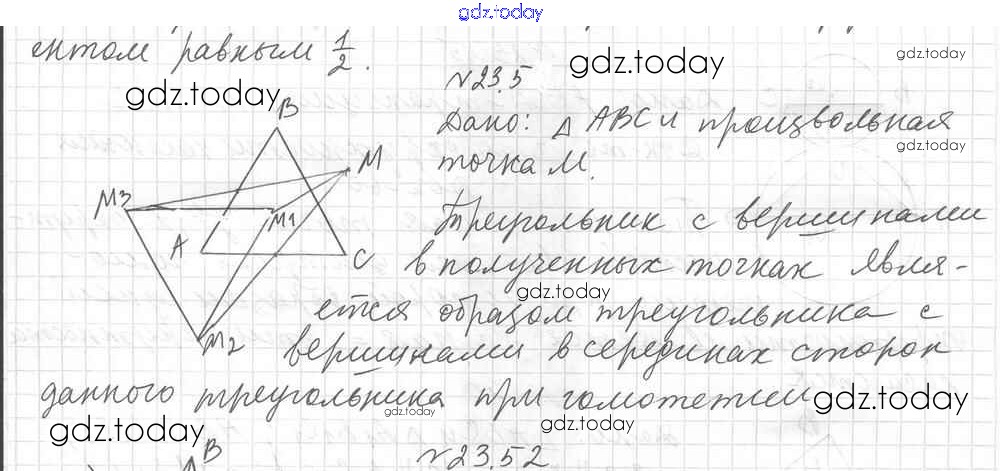 gdz.today
ентом равным 1/2.
gdz.today
gdz.today
№23.5
gdz.today
Дано: △ABC и произвольная
gdz.today
точка M.
B
M
M3
M1
A
C
M2
Треугольник с вершинами
в полученных точках явля-
gdz.today
ется образом треугольника с
вершинами в серединах сторон
данного треугольника при гомотетии
gdz.today
gdz.today
gdz.today
gdz.today
B
№23.52